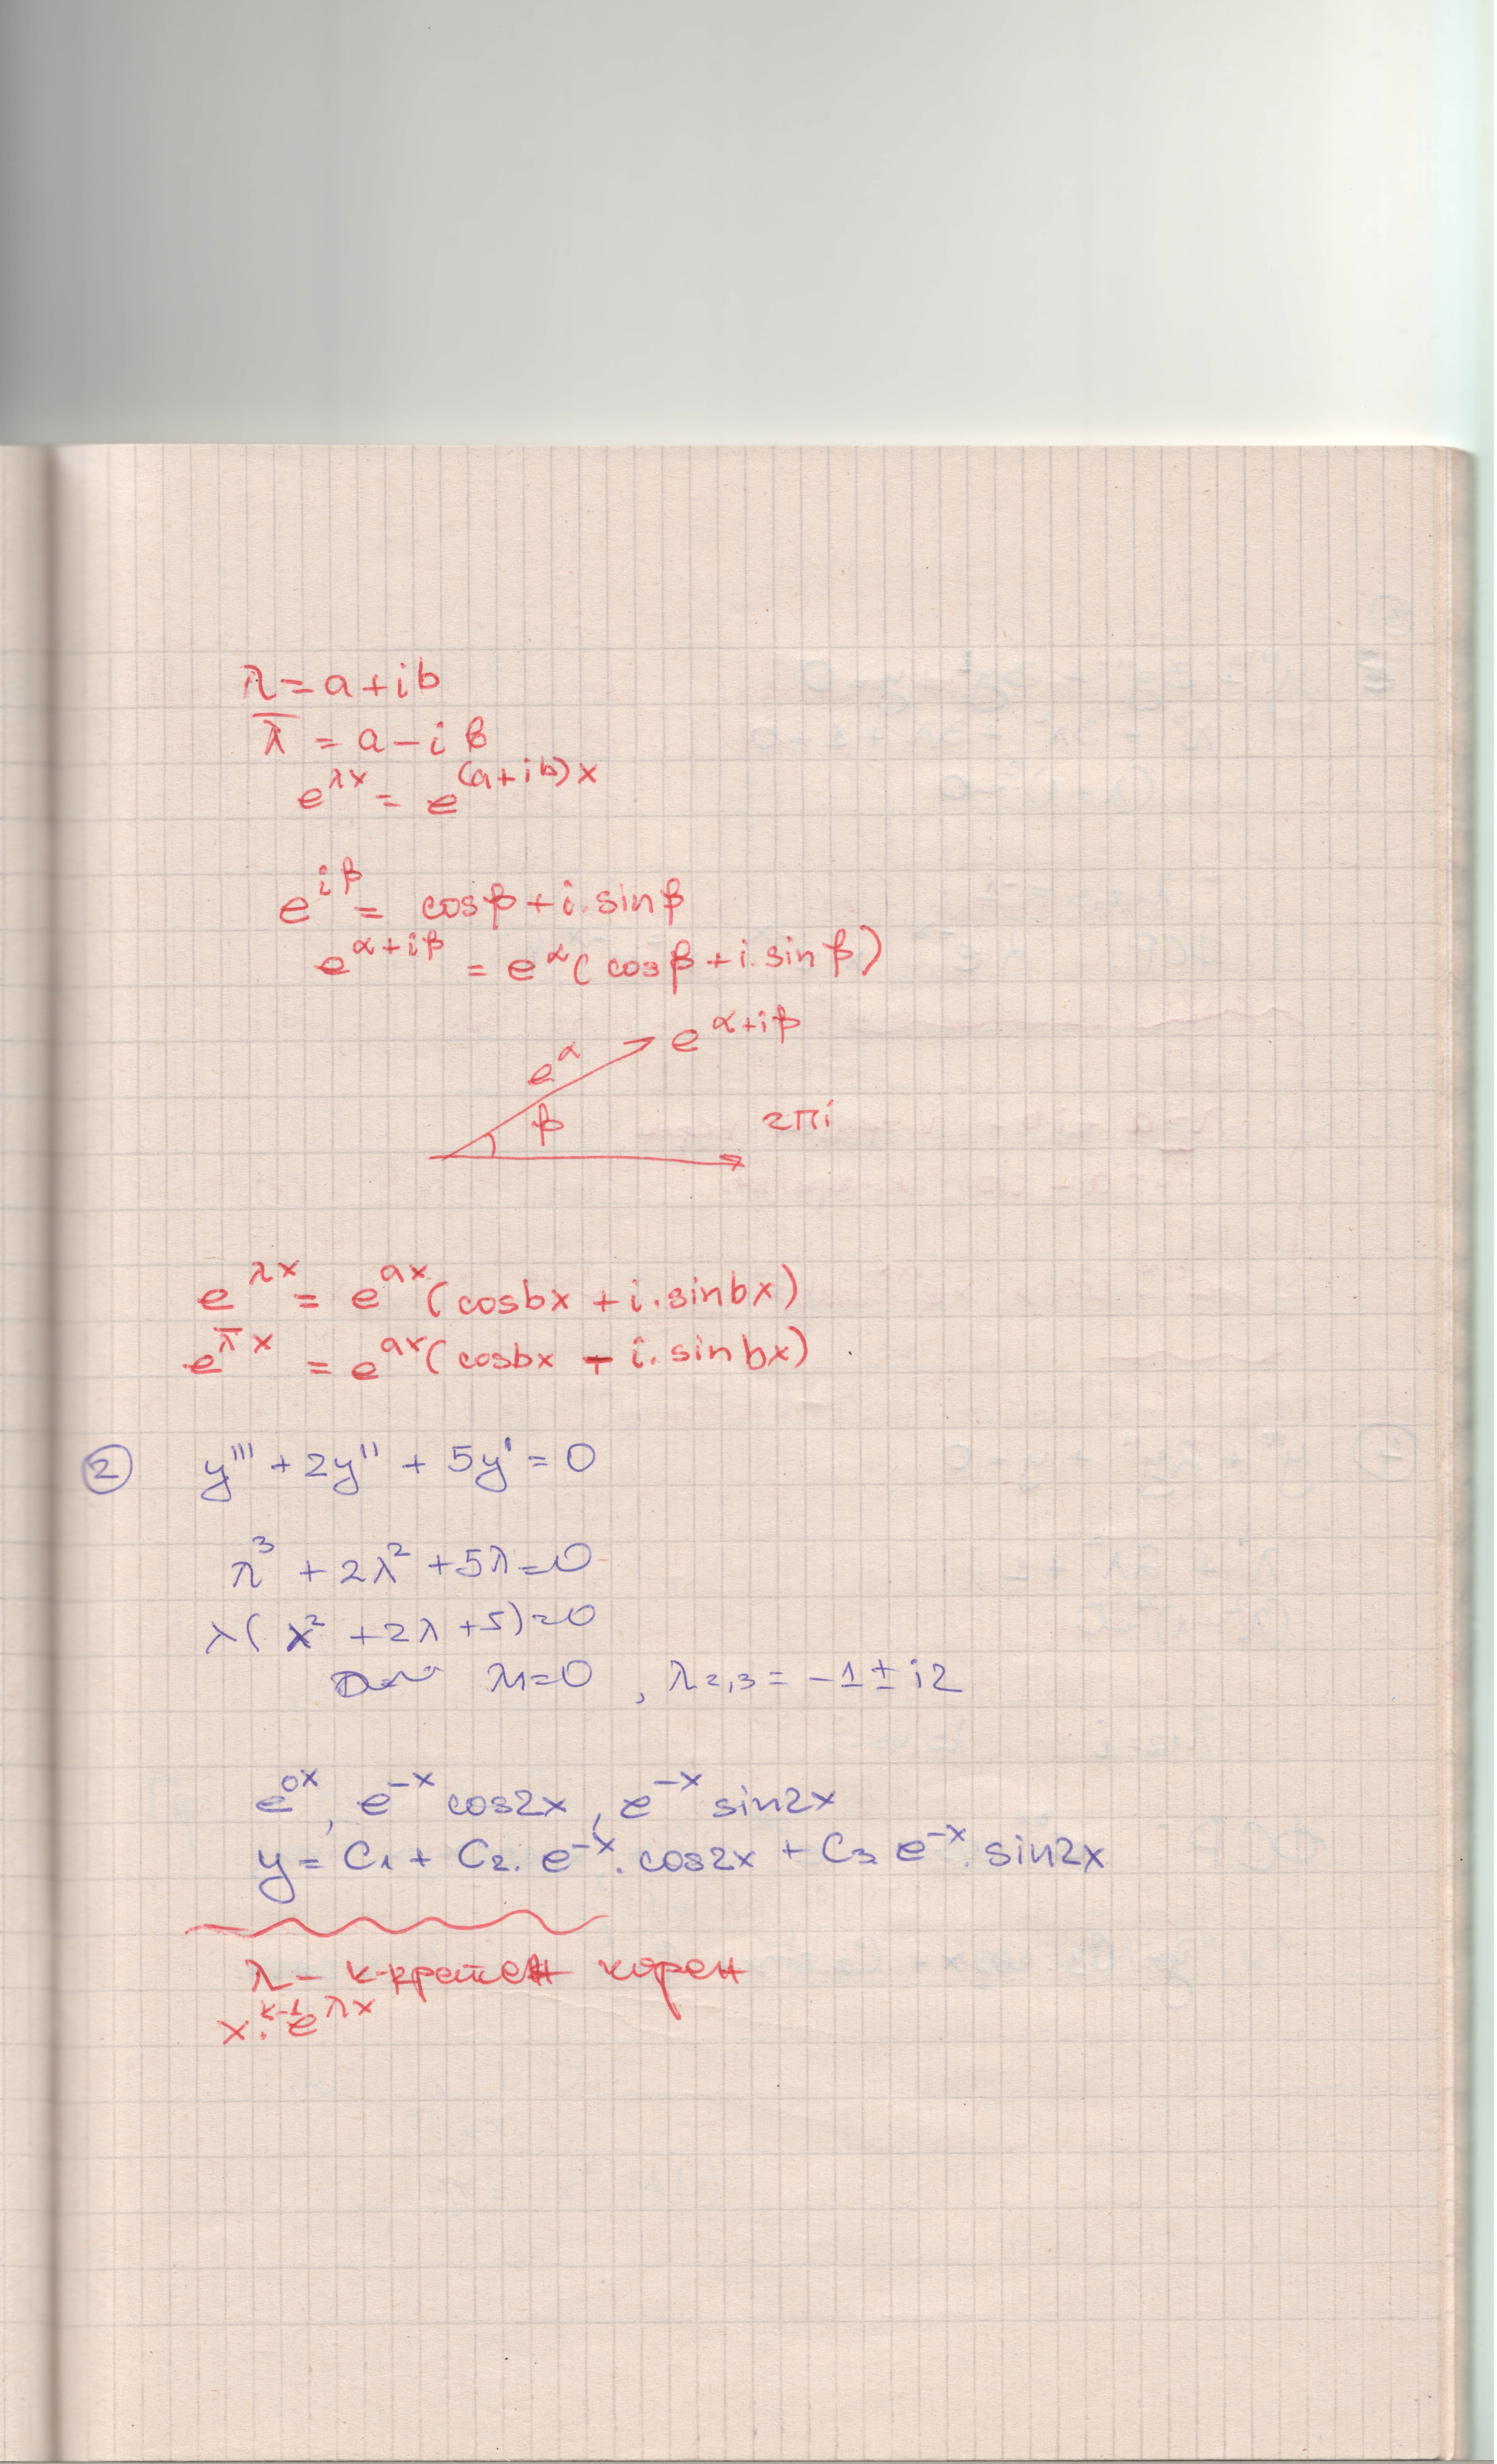 λ = a + ib
λ̅ = a – i b
e^{λx} = e^{(a+ib)x}
e^{iβ} = cosβ + i. sinβ
e^{α+iβ} = e^α ( cosβ + i. sin β)
e^{α+iβ}
e^α
β
2πi
e^{λx} = e^{ax} (cosbx + i. sinbx)
e^{λ̅x} = e^{ax} (cosbx – i. sinbx)
② y''' + 2y'' + 5y' = 0
λ³ + 2λ² + 5λ = 0
λ( λ² + 2λ + 5) = 0
λ₁ = 0 , λ₂,₃ = -1 ± i2
e^{0x}, e^{-x} cos2x, e^{-x} sin2x
y = C₁ + C₂. e^{-x}. cos2x + C₃ e^{-x}. sin2x
λ – к-кратен корен
x^{k-1}. e^{λx}